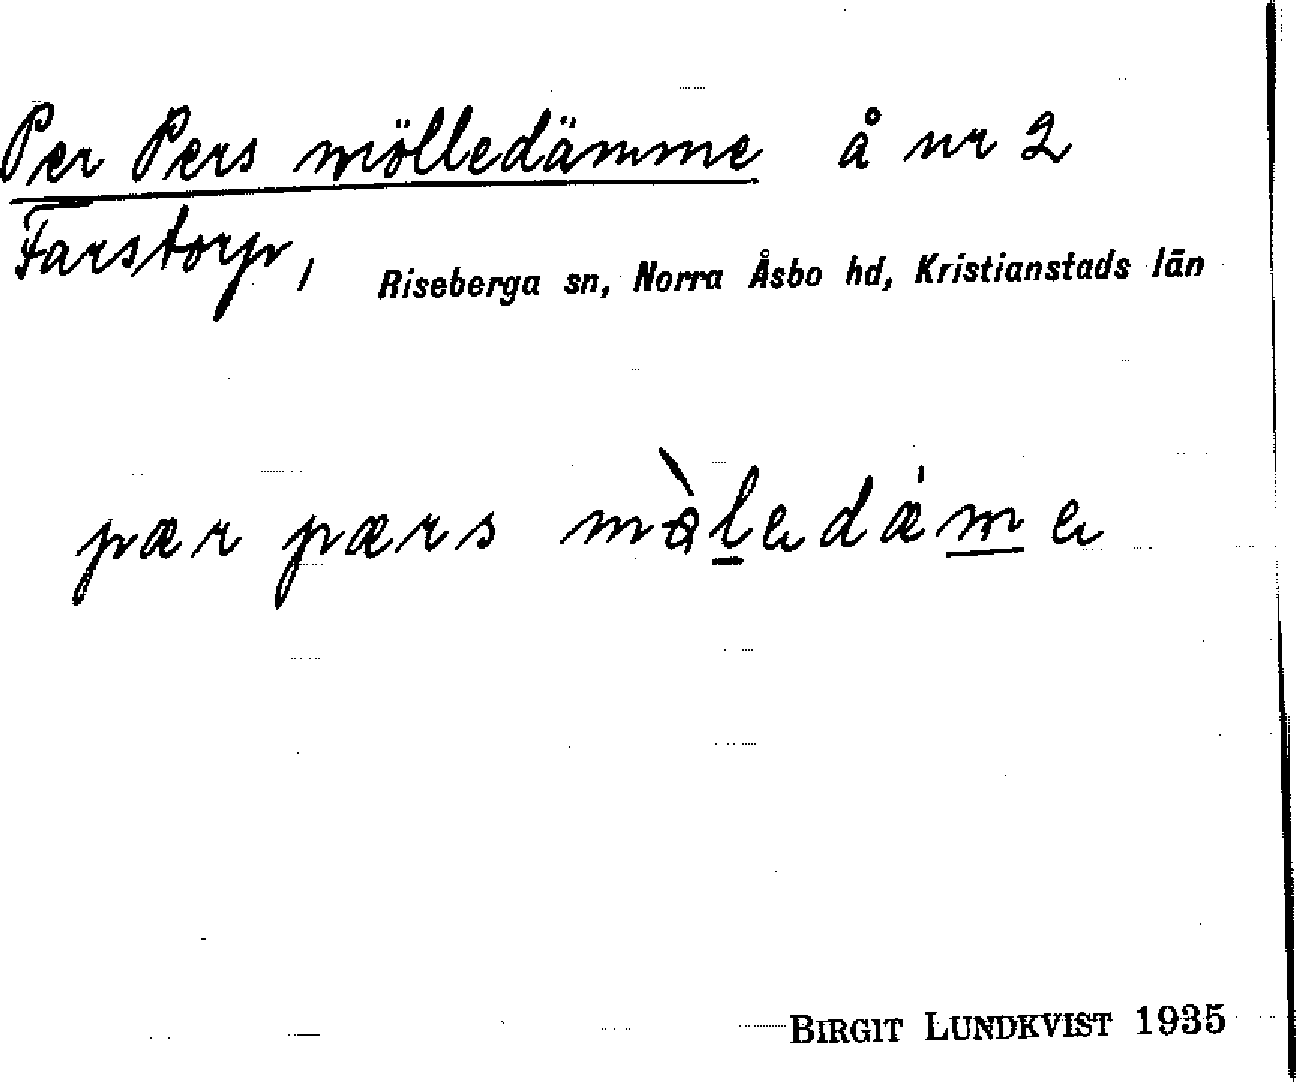 Per Pers mölledämme å nr 2
Farstorp, Riseberga sn, Norra Åsbo hd, Kristianstads län
pær pærs mø̀ledǽme
BIRGIT LUNDKVIST 1935